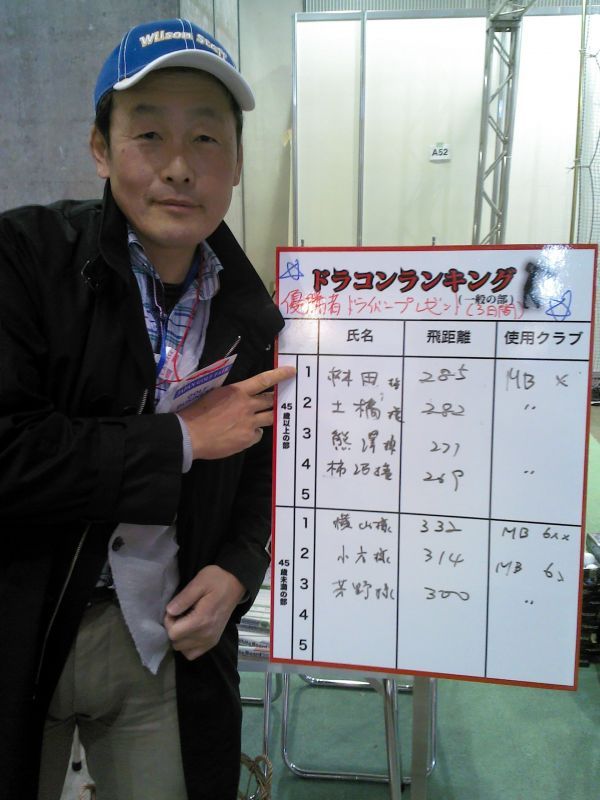 Wilson Staff
A52
ドラコンランキング
(一般の部)
優勝者ドライバープレゼント(3日間)
氏名 飛距離 使用クラブ
45歳以上の部
1 田様 285 MB X
2 土橋様 282 〃
3 熊澤様 277
4 柿沼様 269 〃
5
45歳未満の部
1 横山様 332 MB 6xx
2 小方様 314 MB 6s
3 芳野様 300 〃
4
5